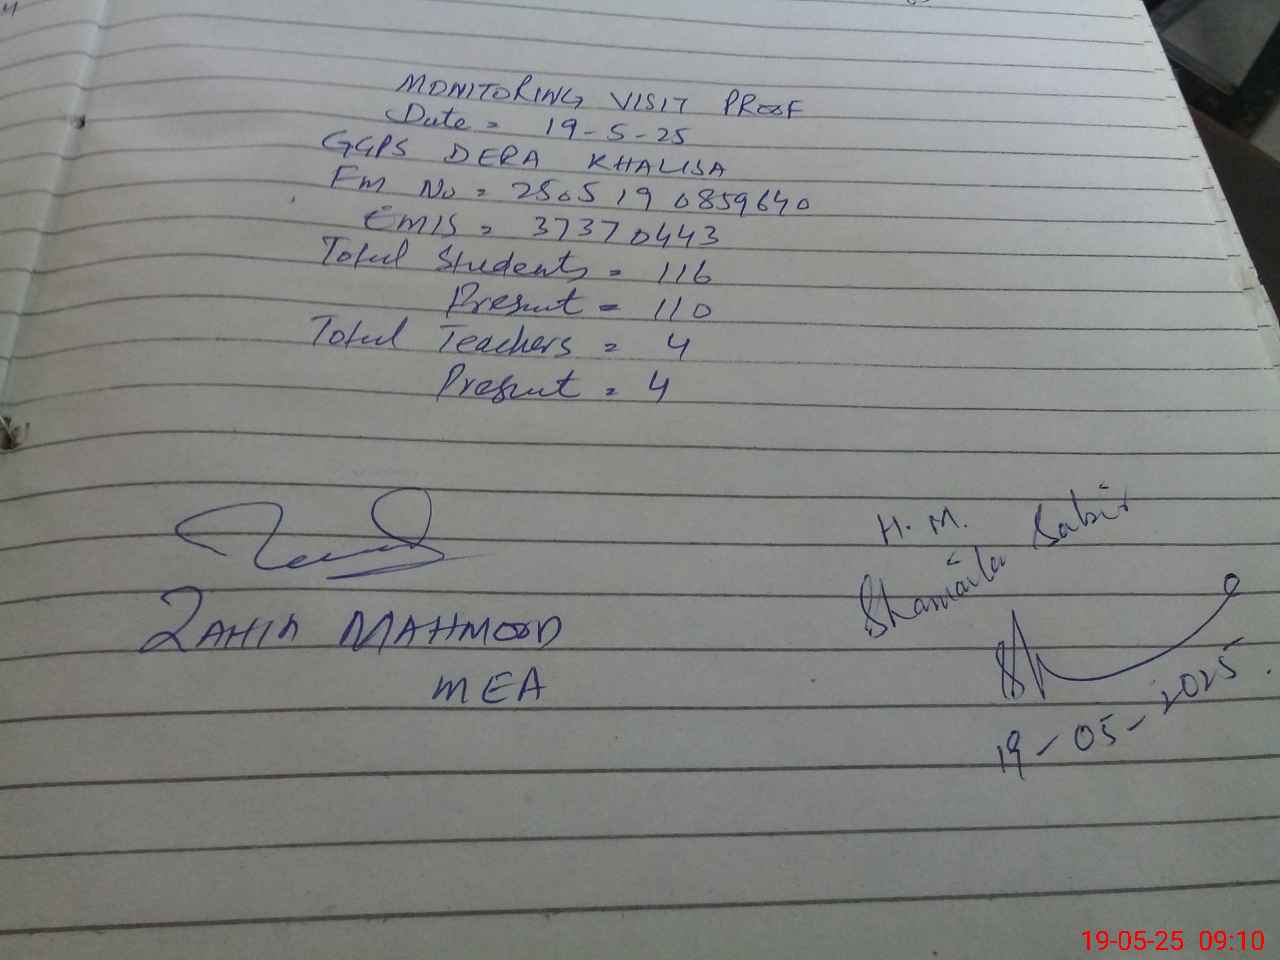 MONITORING VISIT PROOF
Date = 19-5-25
GGPS DERA KHALISA
Fm No = 250519 0859640
EMIS = 37370443
Total Students = 116
Present = 110
Total Teachers = 4
Present = 4
H. M.
Shamaila Sabir
MAHMOOD
MEA
19-05-2025.
19-05-25 09:10